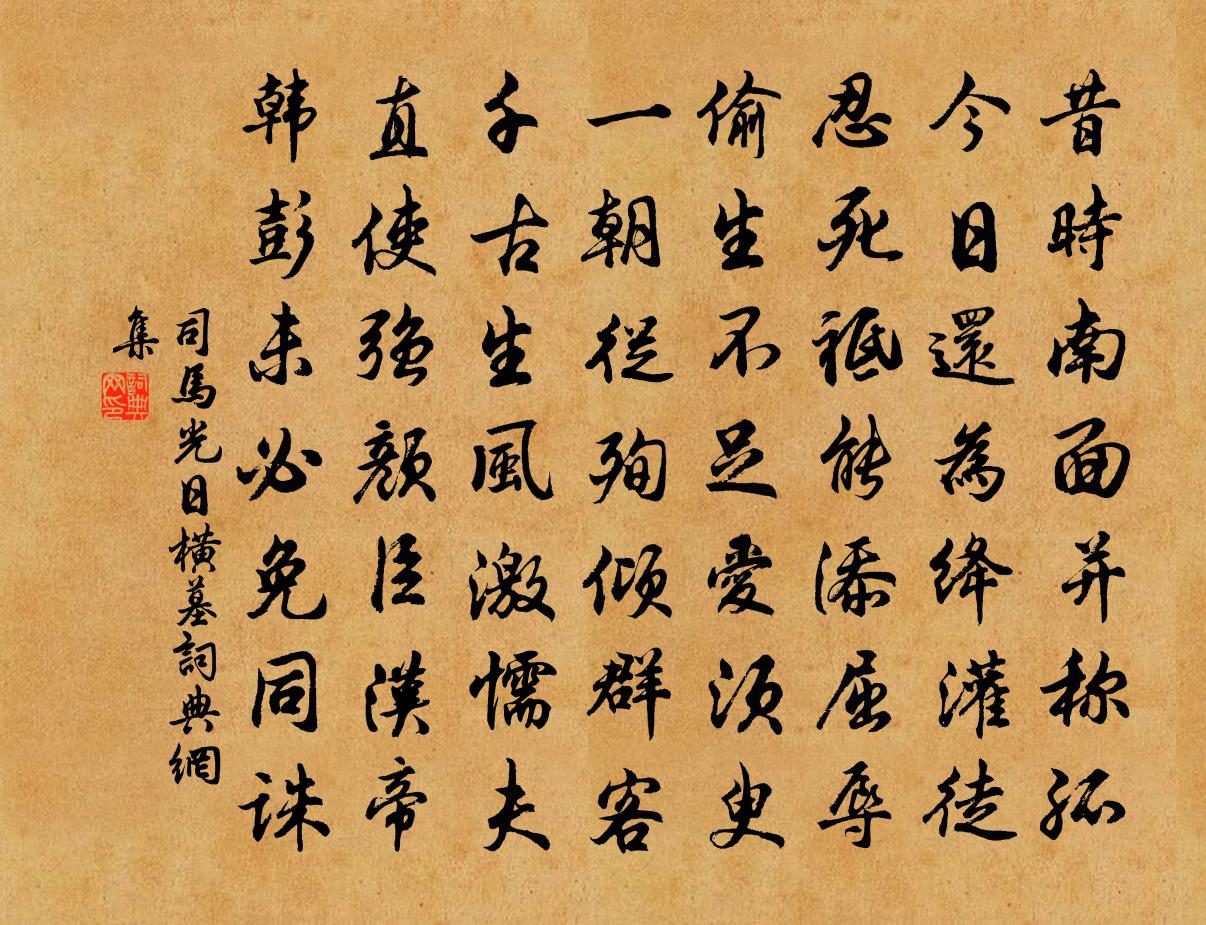 昔時南面并称孤
今日還為絳灌徒
忍死祗能添屈辱
偷生不足愛須臾
一朝從殉傾群客
千古生風激懦夫
直使强顏臣漢帝
韩彭未必免同诛
司馬光日橫墓詞典網
集
詞典
网印